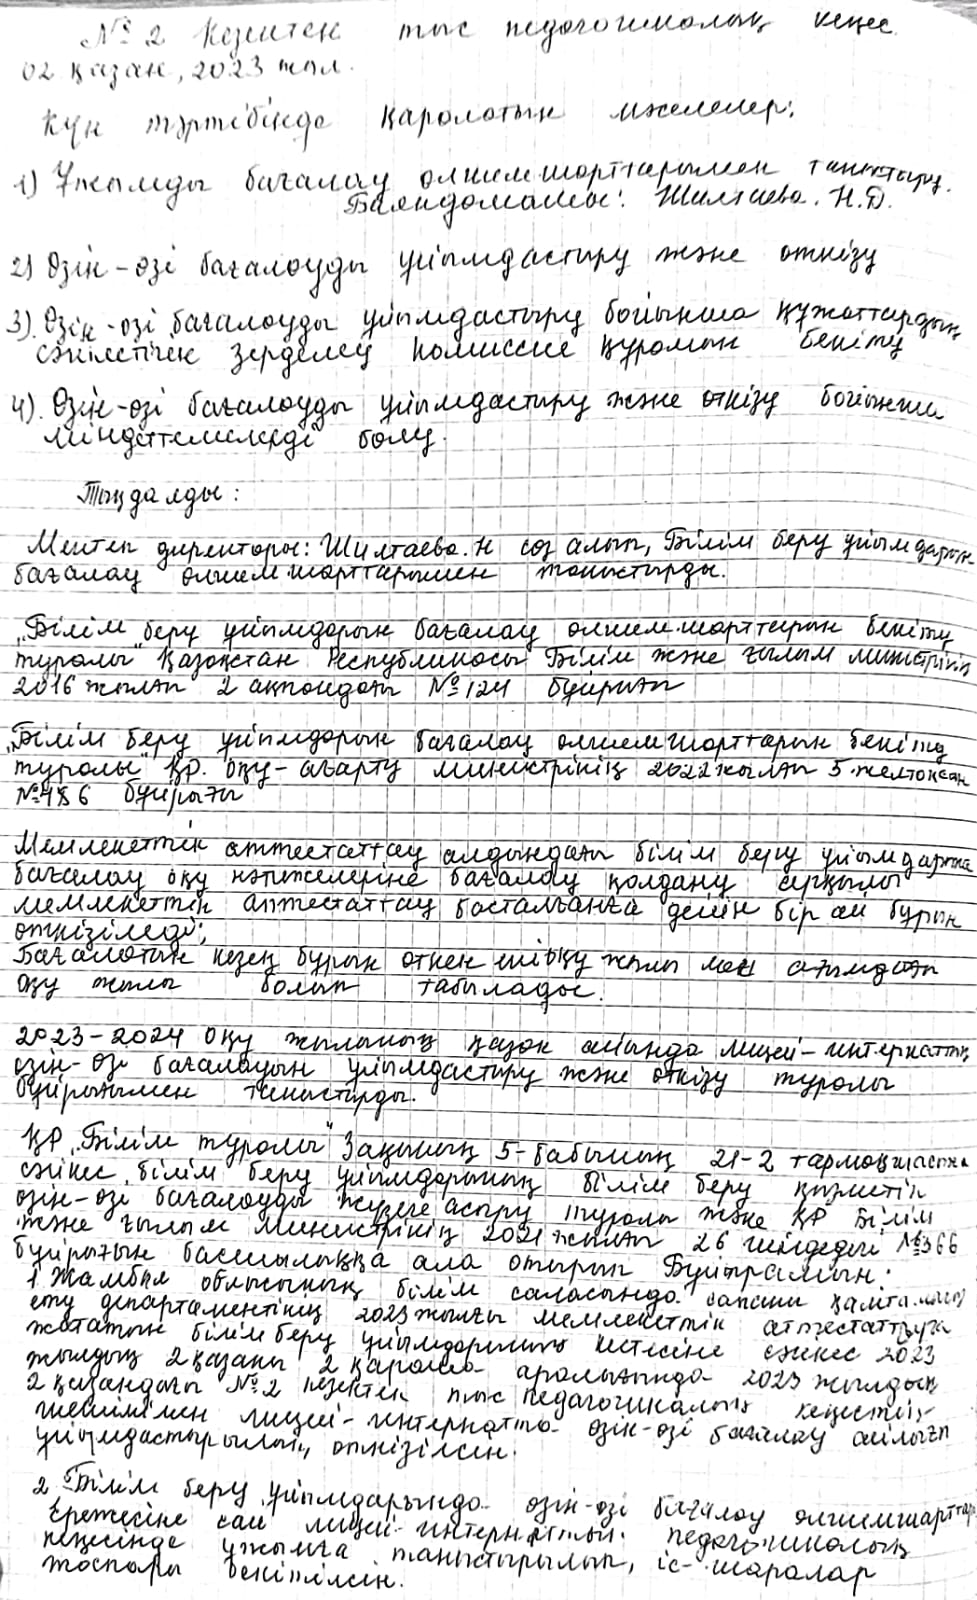 № 2 Кезектен тыс педагогикалық кеңес
02 қазан, 2023 жыл.
Күн тәртібінде қаралатын мәселелер:
1) Ұжымды бағалау өлшемшарттарымен таныстыру.
Баяндамашы: Шилтаева. Н.Д.
2) Өзін-өзі бағалауды ұйымдастыру және өткізу
3). Өзін-өзі бағалауды ұйымдастыру бойынша құжаттардың
сәйкестігін зерделеу комиссия құрамын бекіту
4). Өзін-өзі бағалауды ұйымдастыру және өткізу бойынша
міндеттемелерді бөлу.
Тыңдалды:
Мектеп директоры: Шилтаева. Н сөз алып, Білім беру ұйымдарын
бағалау өлшемшарттарымен таныстырды.
„Білім беру ұйымдарын бағалау өлшемшарттарын бекіту
туралы" Қазақстан Республикасы Білім және ғылым министрінің
2016 жылғы 2 ақпандағы №124 бұйрығы
„Білім беру ұйымдарын бағалау өлшемшарттарын бекіту
туралы" ҚР. оқу-ағарту министрінің 2022 жылғы 5 желтоқсан
№486 бұйрығы
Мемлекеттік аттестаттау алдындағы білім беру ұйымдарға
бағалау оқу нәтижелеріне бағалау қолдану арқылы
мемлекеттік аттестаттау басталғанға дейін бір ай бұрын
өткізіледі;
Бағалайтын кезең бұрын өткен оқу жылы мен ағымдағы
оқу жылы болып табылады.
2023-2024 оқу жылының қазан айында лицей-интернаттың
өзін-өзі бағалауын ұйымдастыру және өткізу туралы
бұйрығымен таныстырды.
ҚР „Білім туралы" Заңының 5-бабының 21-2 тармақшасына
сәйкес білім беру ұйымдарының білім беру қызметін
өзін-өзі бағалауды жүзеге асыру туралы және ҚР Білім
және ғылым Министрінің 2021 жылғы 26 шілдедегі №366
бұйрығын басшылыққа ала отырып Бұйырамын:
1 Жамбыл облысының білім саласында сапаны қамтамасыз
ету департаментінің 2023 жылғы мемлекеттік аттестаттауға
жататын білім беру ұйымдарының кестесіне сәйкес 2023
жылдың 2 қазаны 2 қараша аралығында 2023 жылдың
2 қазандағы №2 кезектен тыс педагогикалық кеңестің
шешімімен лицей-интернатта өзін-өзі бағалау айлығы
ұйымдастырылып, өткізілсін.
2 Білім беру ұйымдарында өзін-өзі бағалау өлшемшарттар
ережесіне сай лицей-интернаттың педагогикалық
кеңесінде ұжымға таныстырылып, іс-шаралар
жоспары бекітілсін.